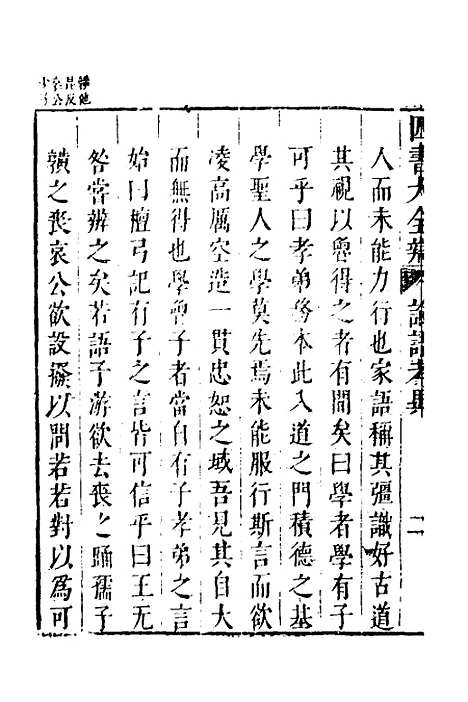 四書大全辨 論語考異 二
人而未能力行也家語稱其彊識好古道
其視以魯得之者有間矣曰學者學有子
可乎曰孝弟務本此入道之門積德之基
學聖人之學莫先焉未能服行斯言而欲
凌高厲空造一貫忠恕之域吾見其自大
而無得也學曾子者當自有子孝弟之言
始曰檀弓記有子之言皆可信乎曰王无
咎嘗辨之矣若語子游欲去喪之踊孺子
䵍之喪哀公欲設撥以問若若對以為可